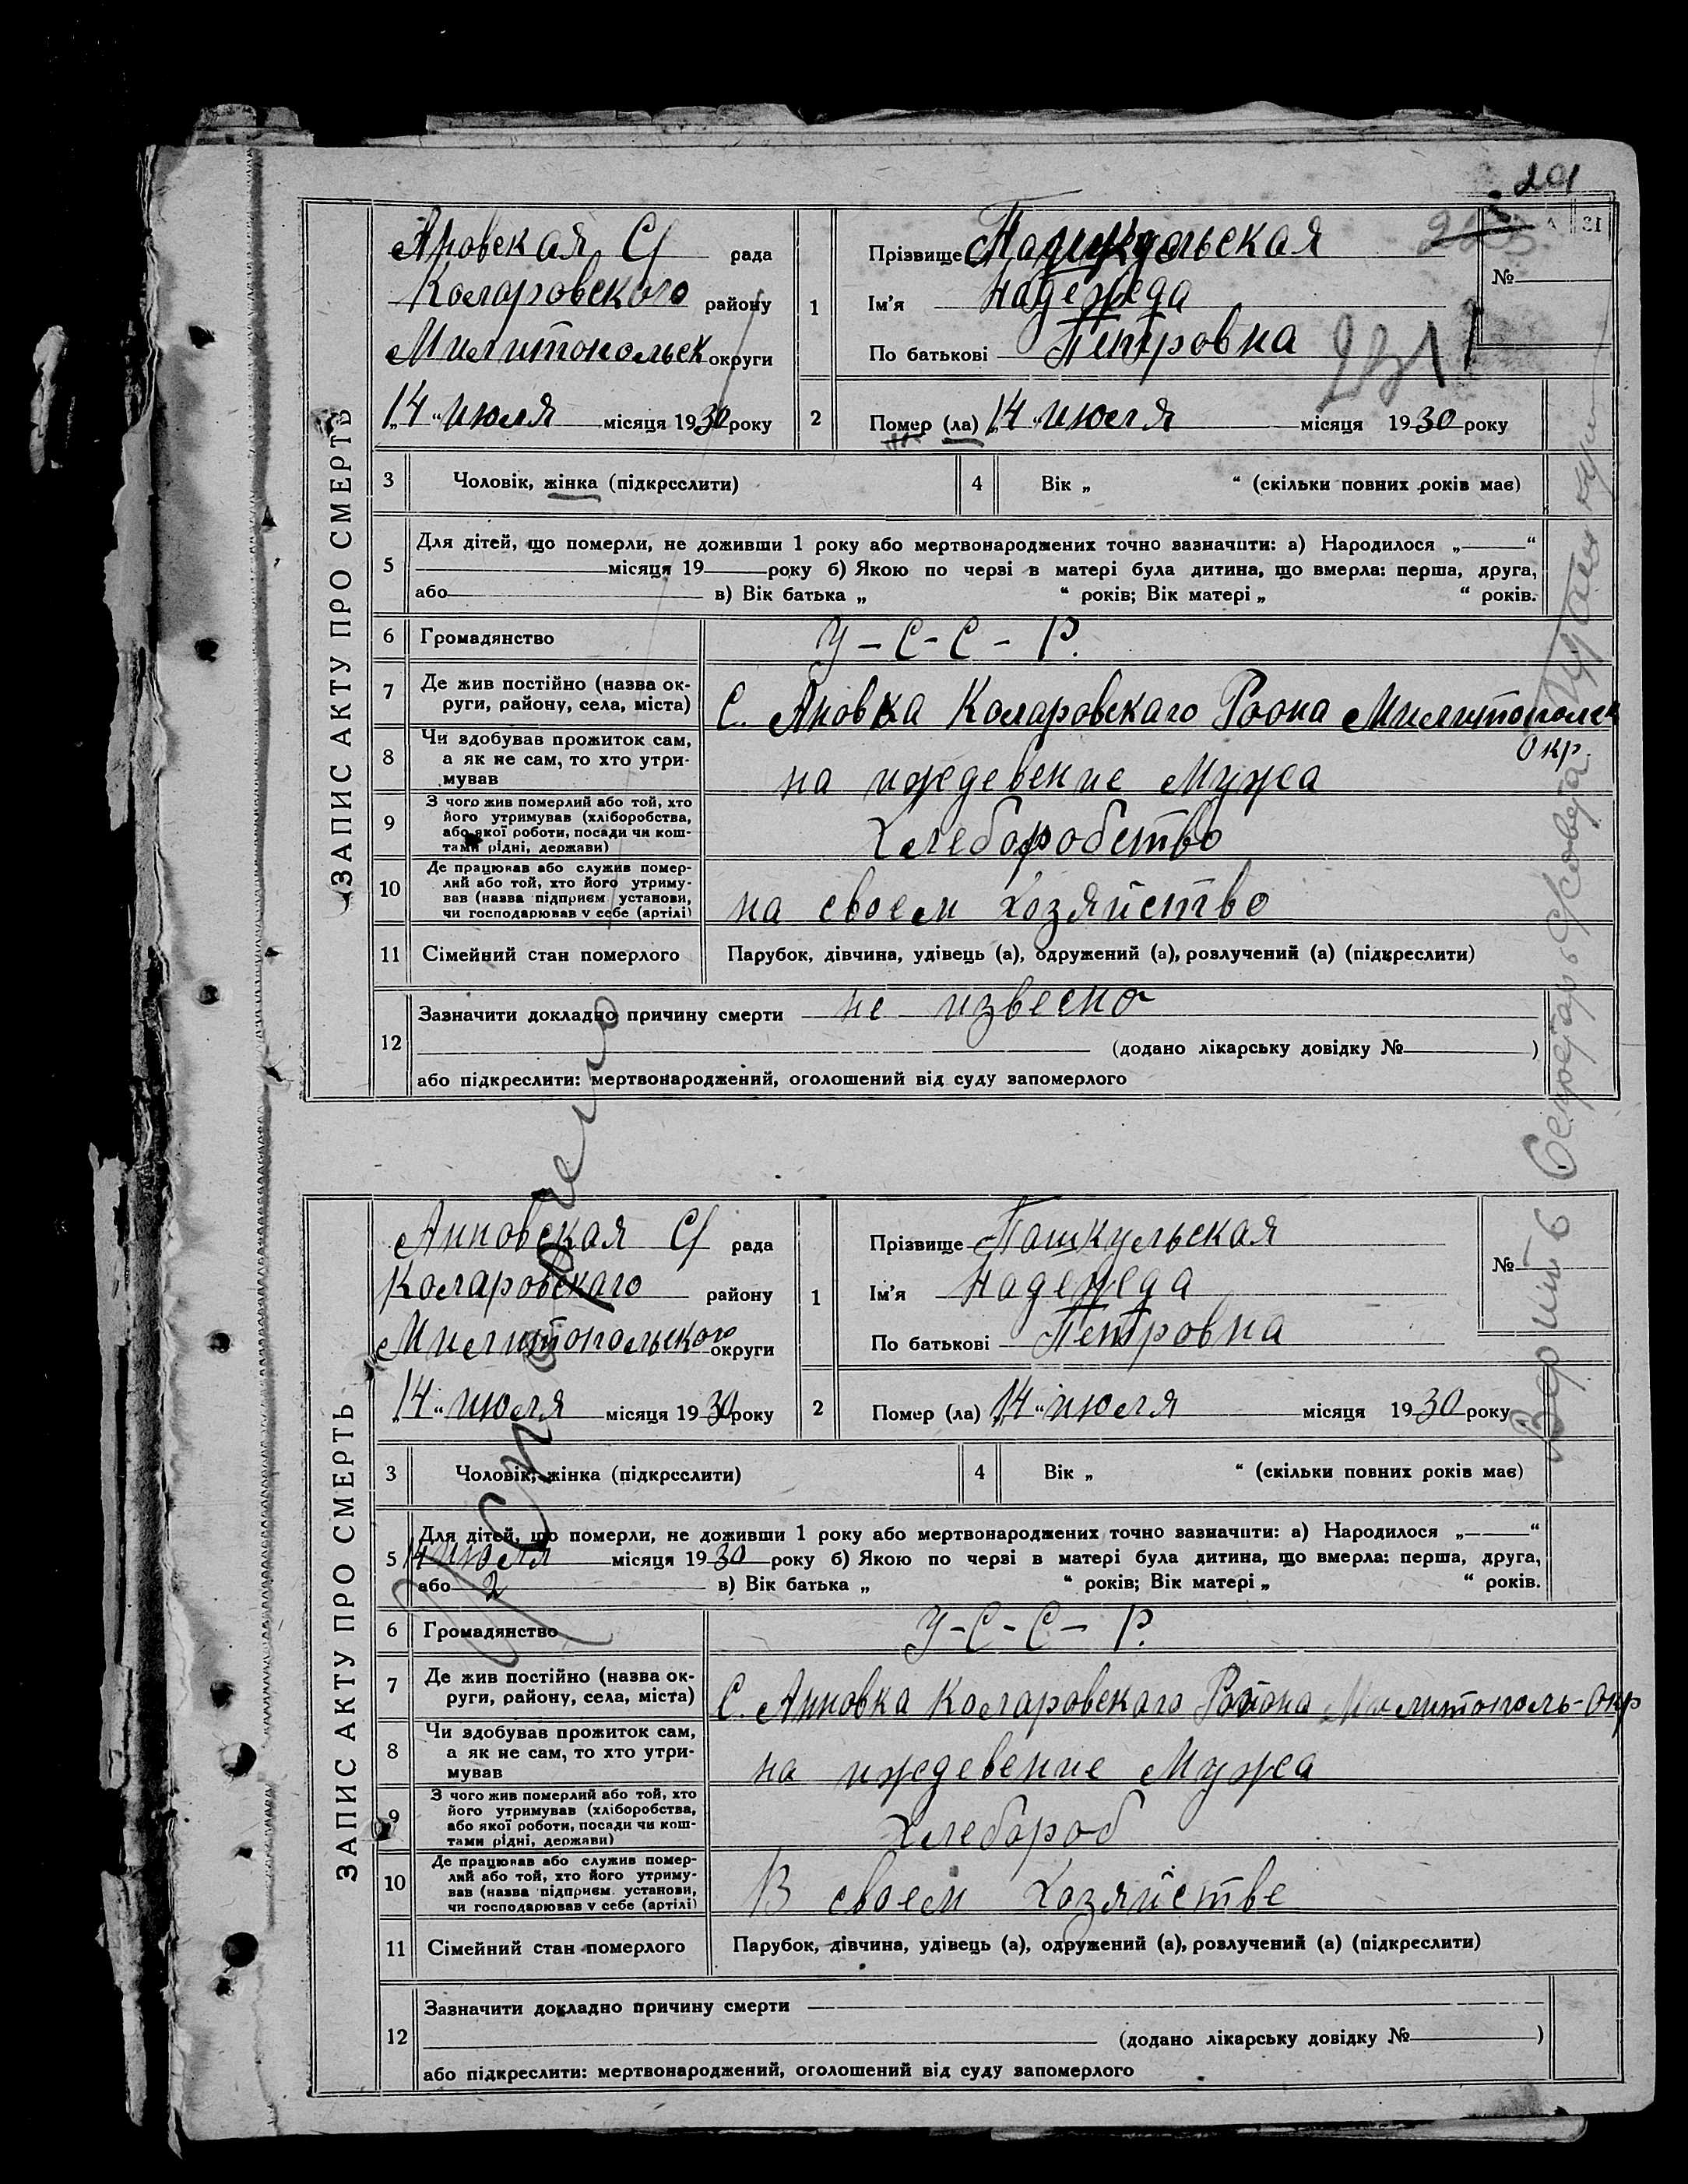 201
Ановская С/ рада
Коларовского району
Милитопольск округи
„14“ июля місяця 1930 року
1
Прізвище
Ім'я Надежда
По батькові Петровна
№
231
2
Помер (ла) „14“ июля місяця 1930 року
ЗАПИС АКТУ ПРО СМЕРТЬ
3 Чоловік, жінка (підкреслити)
4 Вік „ “ (скільки повних років має)
5 Для дітей, що померли, не доживши 1 року або мертвонароджених точно зазначити: а) Народилося „ “
місяця 19 року б) Якою по черзі в матері була дитина, що вмерла: перша, друга,
або в) Вік батька „ “ років; Вік матері „ “ років.
6 Громадянство У-С-С-Р.
7 Де жив постійно (назва ок-
руги, району, села, міста) С. Ановка Коларовскаго Раона Милитополск
Окр.
8 Чи здобував прожиток сам,
а як не сам, то хто утри-
мував на иждевение Мужа
9 З чого жив померлий або той, хто
його утримував (хліборобства,
або якої роботи, посади чи кош-
тами рідні, держави) Хлеборобство
10 Де працював або служив помер-
лий або той, хто його утриму-
вав (назва підприєм установи,
чи господарював у себе (артілі) на своем хозяйство
11 Сімейний стан померлого Парубок, дівчина, удівець (а), одружений (а), розлучений (а) (підкреслити)
12 Зазначити докладно причину смерти не извесно
(додано лікарську довідку № )
або підкреслити: мертвонароджений, оголошений від суду запомерлого
Секретарь
Анновская С/ рада
Коларовскаго району
Милитопольского округи
„14“ июля місяця 1930 року
1
Прізвище Пашкульская
Ім'я Надежда
По батькові Петровна
№
2
Помер (ла) „14“ июля місяця 1930 року
ЗАПИС АКТУ ПРО СМЕРТЬ
3 Чоловік, жінка (підкреслити)
4 Вік „ “ (скільки повних років має)
5 Для дітей, що померли, не доживши 1 року або мертвонароджених точно зазначити: а) Народилося „ “
14 июля місяця 1930 року б) Якою по черзі в матері була дитина, що вмерла: перша, друга,
або 2 в) Вік батька „ “ років; Вік матері „ “ років.
6 Громадянство У-С-С-Р.
7 Де жив постійно (назва ок-
руги, району, села, міста) С. Анновка Коларовскаго Раиона Милитополь-Окр
8 Чи здобував прожиток сам,
а як не сам, то хто утри-
мував на иждевение Мужа
9 З чого жив померлий або той, хто
його утримував (хліборобства,
або якої роботи, посади чи кош-
тами рідні, держави) Хлебороб
10 Де працював або служив помер-
лий або той, хто його утриму-
вав (назва підприєм. установи,
чи господарював у себе (артілі) В своем Хозяйстве
11 Сімейний стан померлого Парубок, дівчина, удівець (а), одружений (а), розлучений (а) (підкреслити)
12 Зазначити докладно причину смерти
(додано лікарську довідку № )
або підкреслити: мертвонароджений, оголошений від суду запомерлого